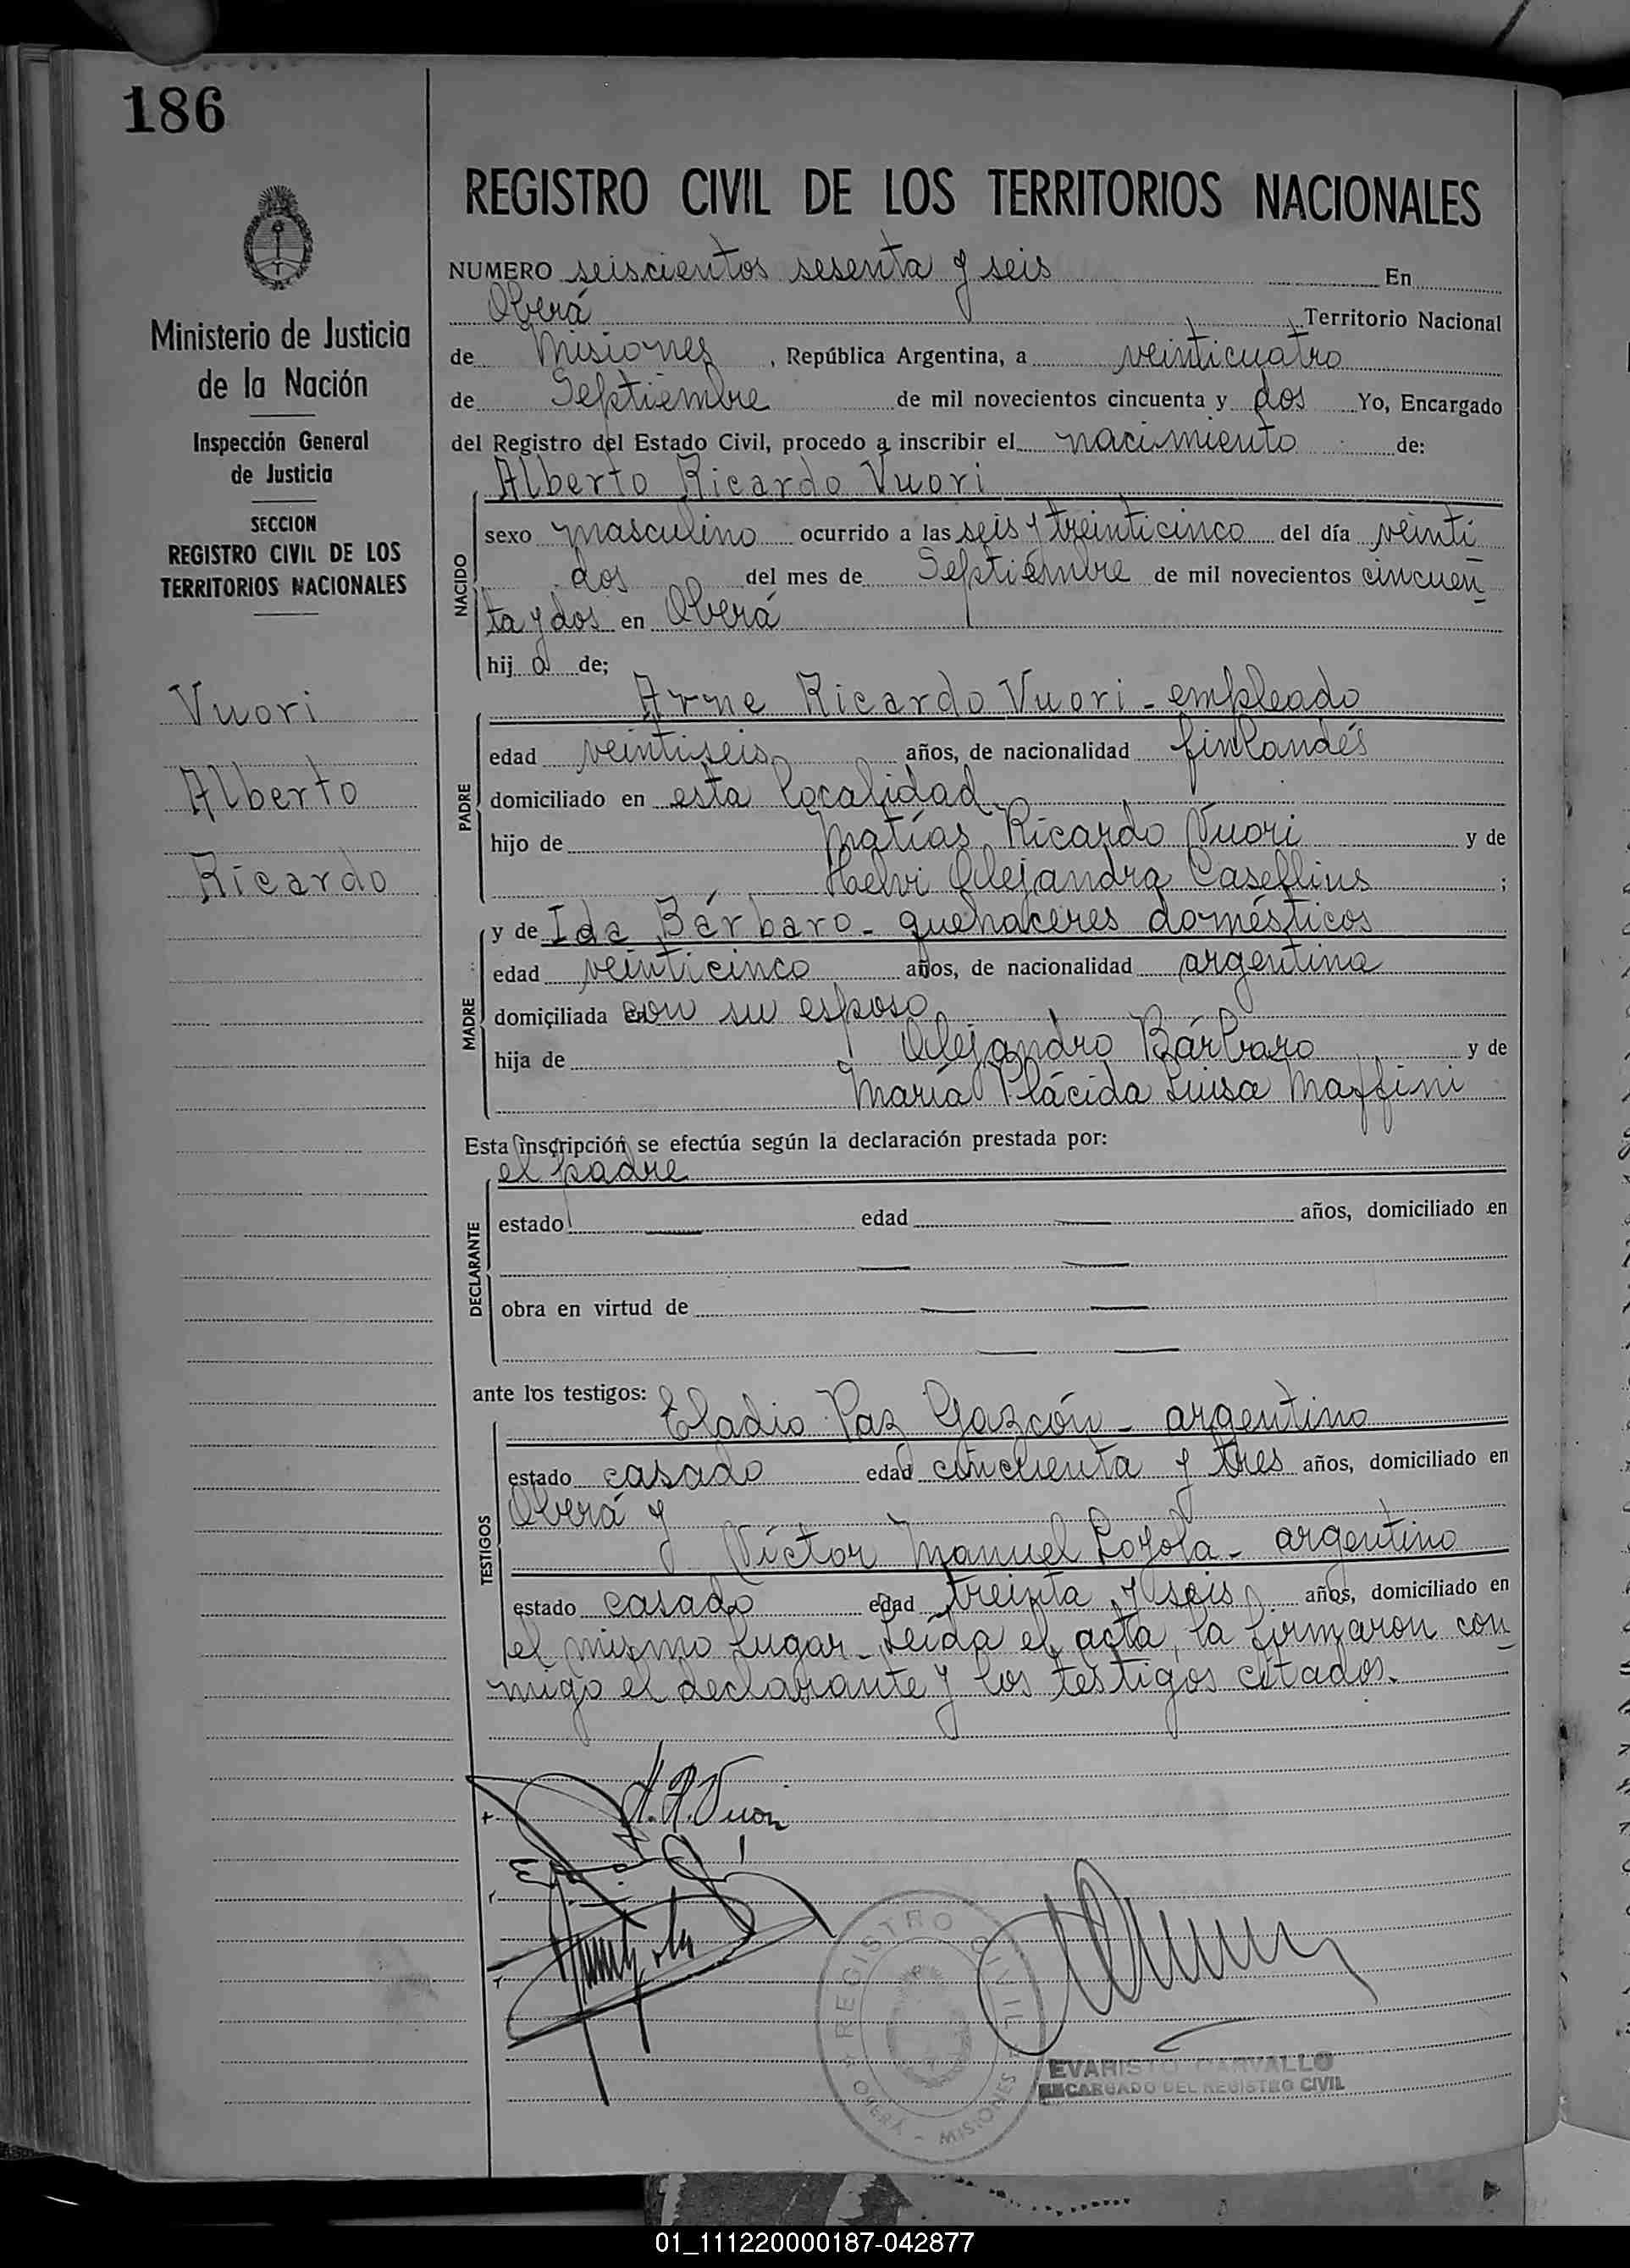 186
Ministerio de Justicia
de la Nación
Inspección General
de Justicia
SECCION
REGISTRO CIVIL DE LOS
TERRITORIOS NACIONALES
Vuori
Alberto
Ricardo
REGISTRO CIVIL DE LOS TERRITORIOS NACIONALES
NUMERO seiscientos sesenta y seis En
Oberá Territorio Nacional
de Misiones, República Argentina, a veinticuatro
de Septiembre de mil novecientos cincuenta y dos Yo, Encargado
del Registro del Estado Civil, procedo a inscribir el nacimiento de:
Alberto Ricardo Vuori
NACIDO
sexo masculino ocurrido a las seis y treinticinco del día veinti
dos del mes de Septiembre de mil novecientos cincuen
ta y dos en Oberá
hijo de;
Arne Ricardo Vuori - empleado
PADRE
edad veintiseis años, de nacionalidad finlandés
domiciliado en esta localidad
hijo de Matías Ricardo Vuori y de
Helvi Alejandra Casellius ;
y de Ida Bárbaro - quehaceres domésticos
MADRE
edad veinticinco años, de nacionalidad argentina
domiciliada con su esposo
hija de Alejandro Bárbaro y de
María Plácida Luisa Maffini
Esta inscripción se efectúa según la declaración prestada por:
el padre
DECLARANTE
estado — edad — años, domiciliado en
— —
obra en virtud de — —
— —
ante los testigos: Eladio Paz Gazcón - argentino
TESTIGOS
estado casado edad cincuenta y tres años, domiciliado en
Oberá y
Víctor Manuel Loyola - argentino
estado casado edad treinta y seis años, domiciliado en
el mismo lugar - Leída el acta, la firmaron con
migo el declarante y los testigos citados.
A. R. Vuori
REGISTRO CIVIL
OBERÁ - MISIONES
EVARISTO CARVALLO
ENCARGADO DEL REGISTRO CIVIL
01_111220000187-042877